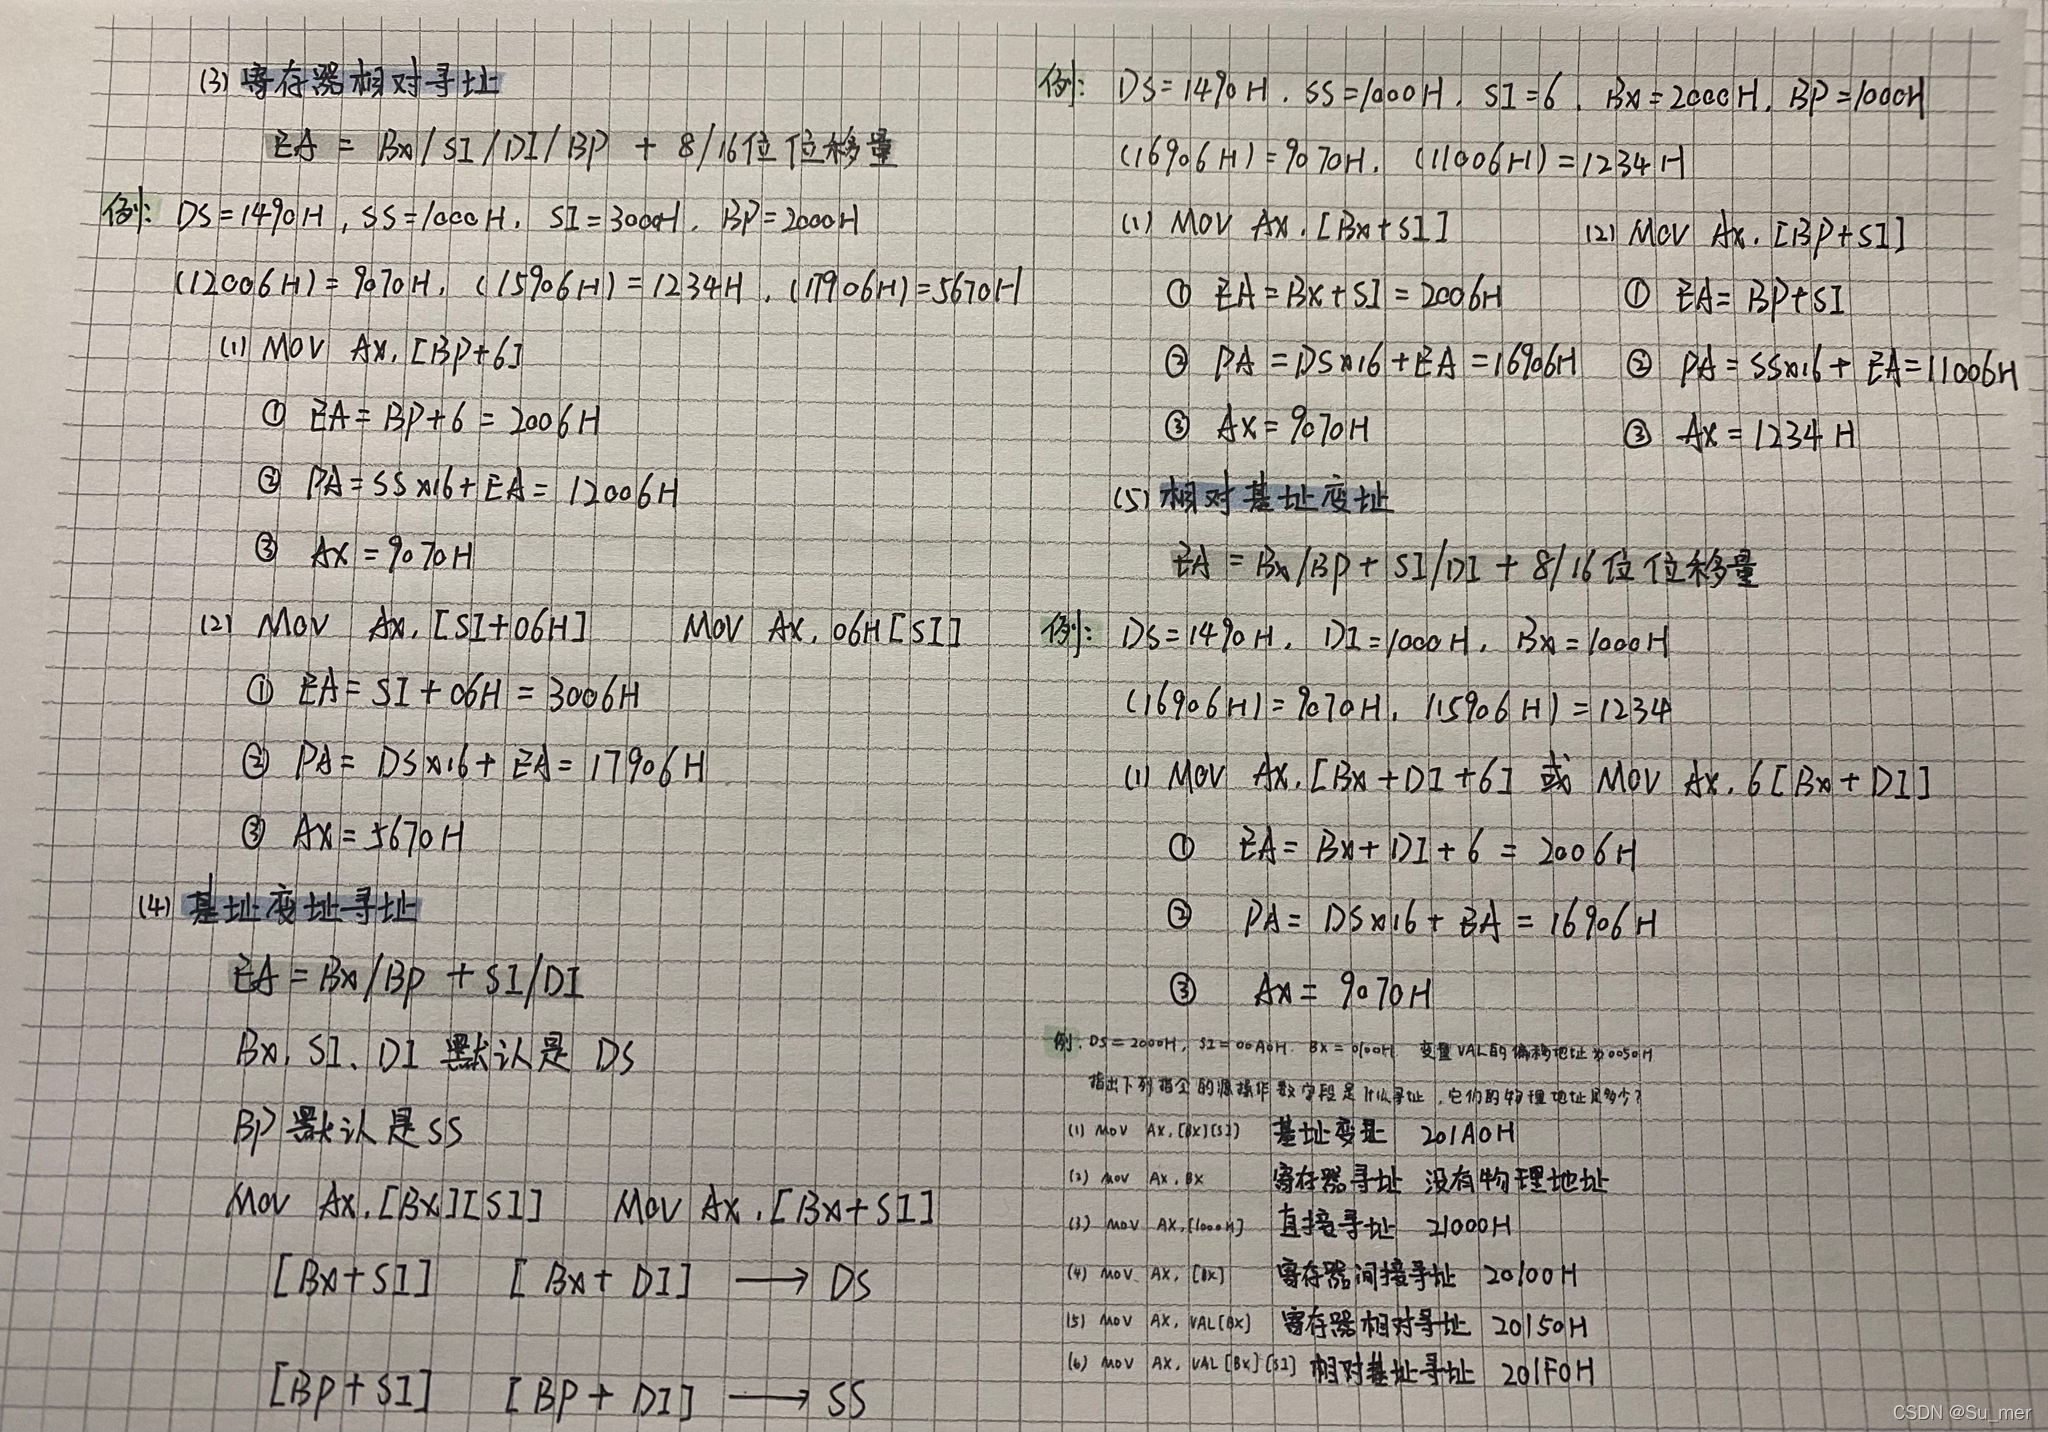 (3) 寄存器相对寻址
EA = BX/SI/DI/BP + 8/16位位移量
例: DS=1490H, SS=1000H, SI=3000H, BP=2000H
(12006H)=9070H, (15906H)=1234H, (17906H)=5670H
(1) MOV AX, [BP+6]
① EA=BP+6=2006H
② PA=SS×16+EA=12006H
③ AX=9070H
(2) MOV AX, [SI+06H] MOV AX, 06H[SI]
① EA=SI+06H=3006H
② PA=DS×16+EA=17906H
③ AX=5670H
(4) 基址变址寻址
EA=BX/BP+SI/DI
BX、SI、DI 默认是 DS
BP 默认是 SS
MOV AX, [BX][SI] MOV AX, [BX+SI]
[BX+SI] [BX+DI] → DS
[BP+SI] [BP+DI] → SS
例: DS=1490H, SS=1000H, SI=6, BX=2000H, BP=1000H
(16906H)=9070H, (11006H)=1234H
(1) MOV AX, [BX+SI] (2) MOV AX, [BP+SI]
① EA=BX+SI=2006H ① EA=BP+SI
② PA=DS×16+EA=16906H ② PA=SS×16+EA=11006H
③ AX=9070H ③ AX=1234H
(5) 相对基址变址
EA=BX/BP+SI/DI+8/16位位移量
例: DS=1490H, DI=1000H, BX=1000H
(16906H)=9070H, (15906H)=1234
(1) MOV AX, [BX+DI+6] 或 MOV AX, 6[BX+DI]
① EA=BX+DI+6=2006H
② PA=DS×16+EA=16906H
③ AX=9070H
例: DS=2000H, SI=00A0H, BX=0100H, 变量VAL的偏移地址为0050H
指出下列指令的源操作数字段是什么寻址,它们的物理地址是多少?
(1) MOV AX, [BX][SI] 基址变址 201A0H
(2) MOV AX, BX 寄存器寻址 没有物理地址
(3) MOV AX, [1000H] 直接寻址 21000H
(4) MOV AX, [BX] 寄存器间接寻址 20100H
(5) MOV AX, VAL[BX] 寄存器相对寻址 20150H
(6) MOV AX, VAL[BX][SI] 相对基址寻址 201F0H
CSDN @Su_mer